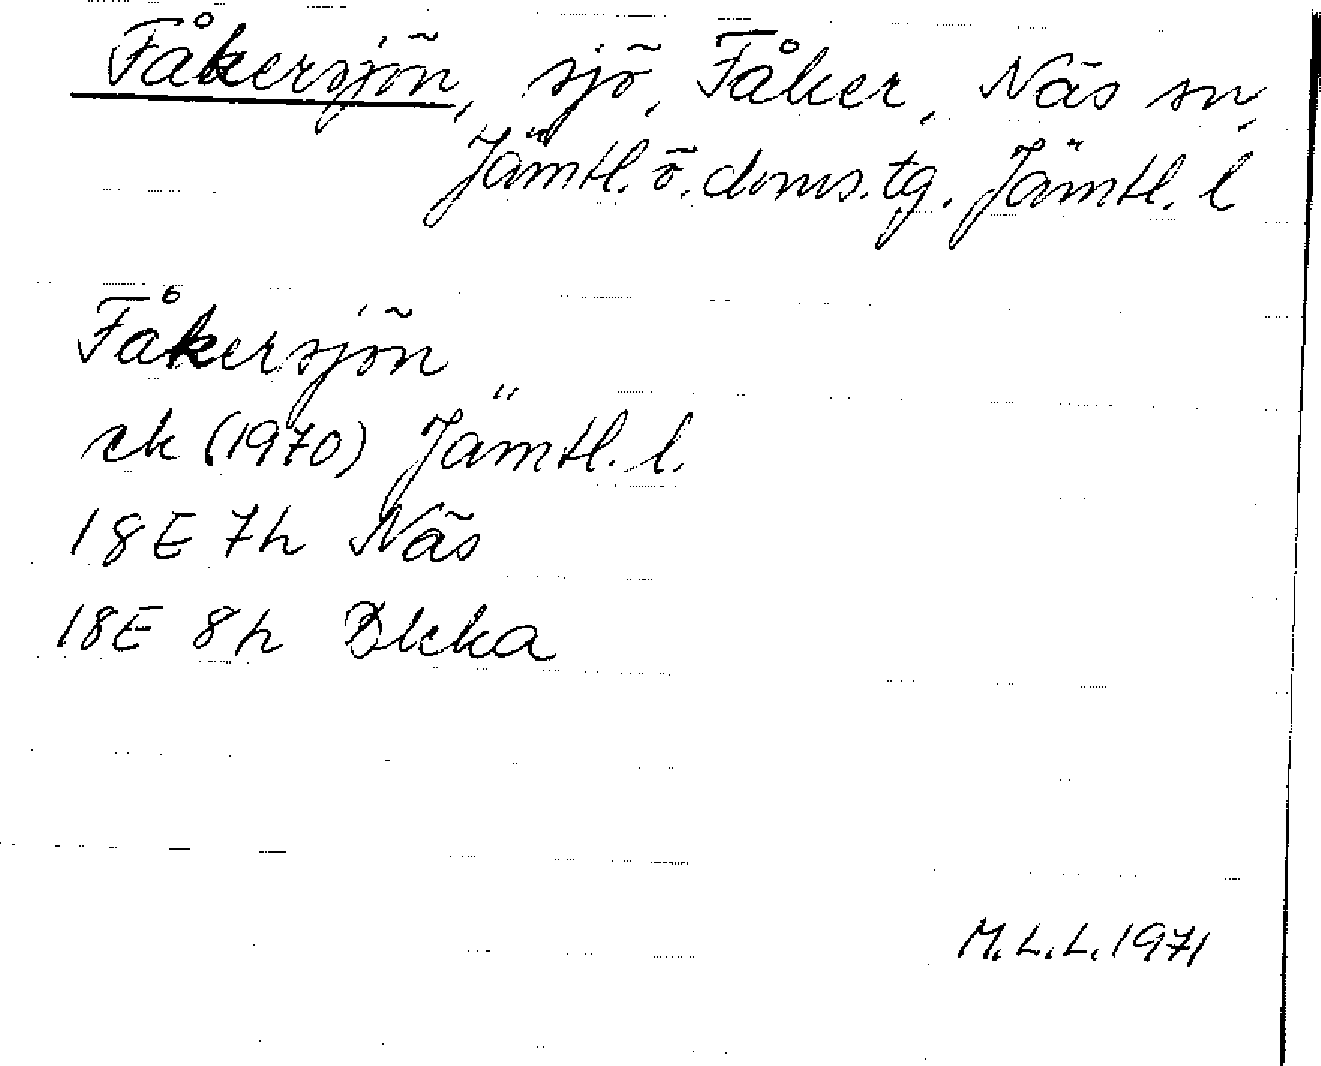 Fåkersjön, sjö, Fåker, Näs sn,
Jämtl. ö. doms. tg. Jämtl. l
Fåkersjön
ek (1970) Jämtl. l.
18E 7h Näs
18E 8h Bleka
M.L.L. 1971